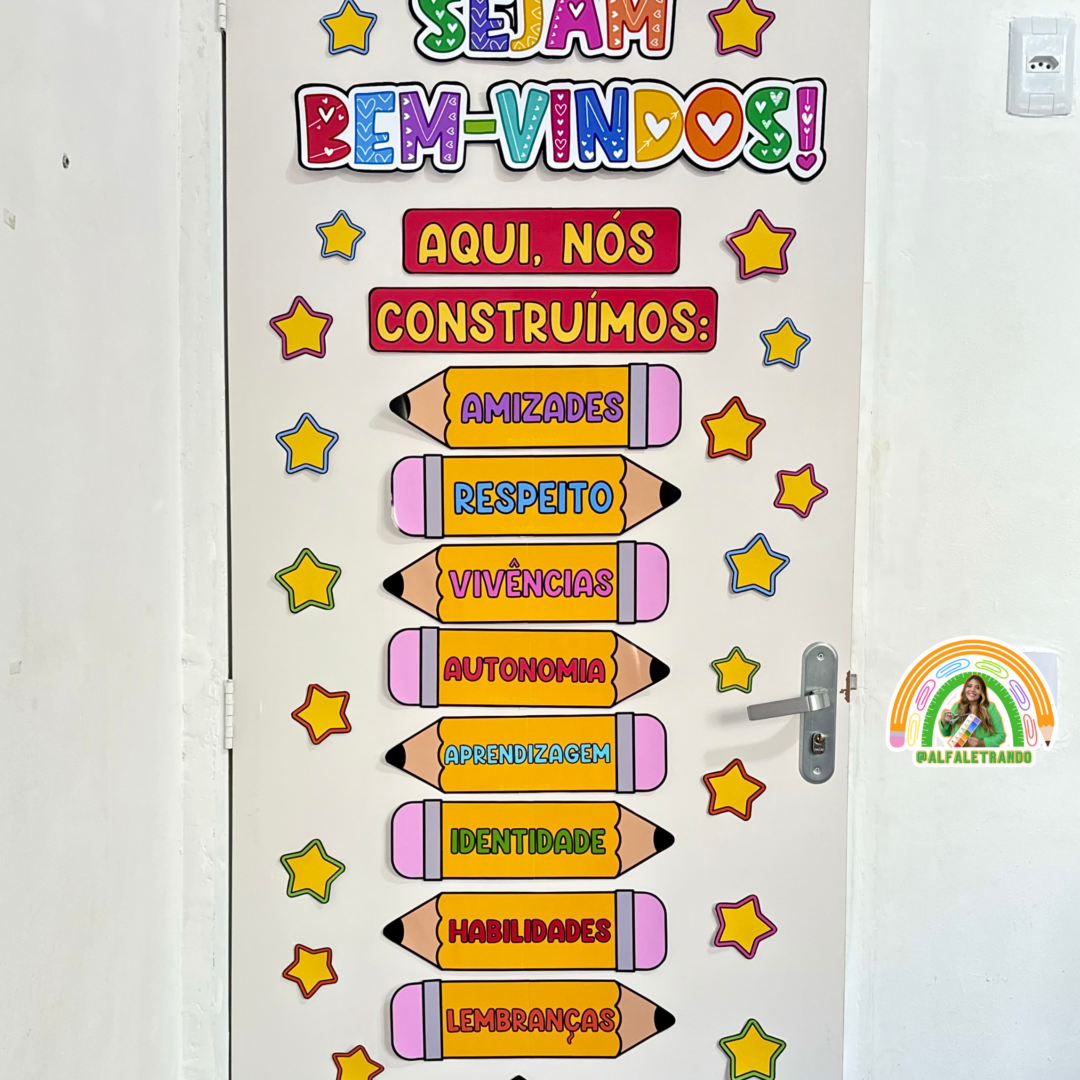 SEJAM
BEM-VINDOS!
AQUI, NÓS
CONSTRUÍMOS:
AMIZADES
RESPEITO
VIVÊNCIAS
AUTONOMIA
APRENDIZAGEM
IDENTIDADE
HABILIDADES
LEMBRANÇAS
@ALFALETRANDO